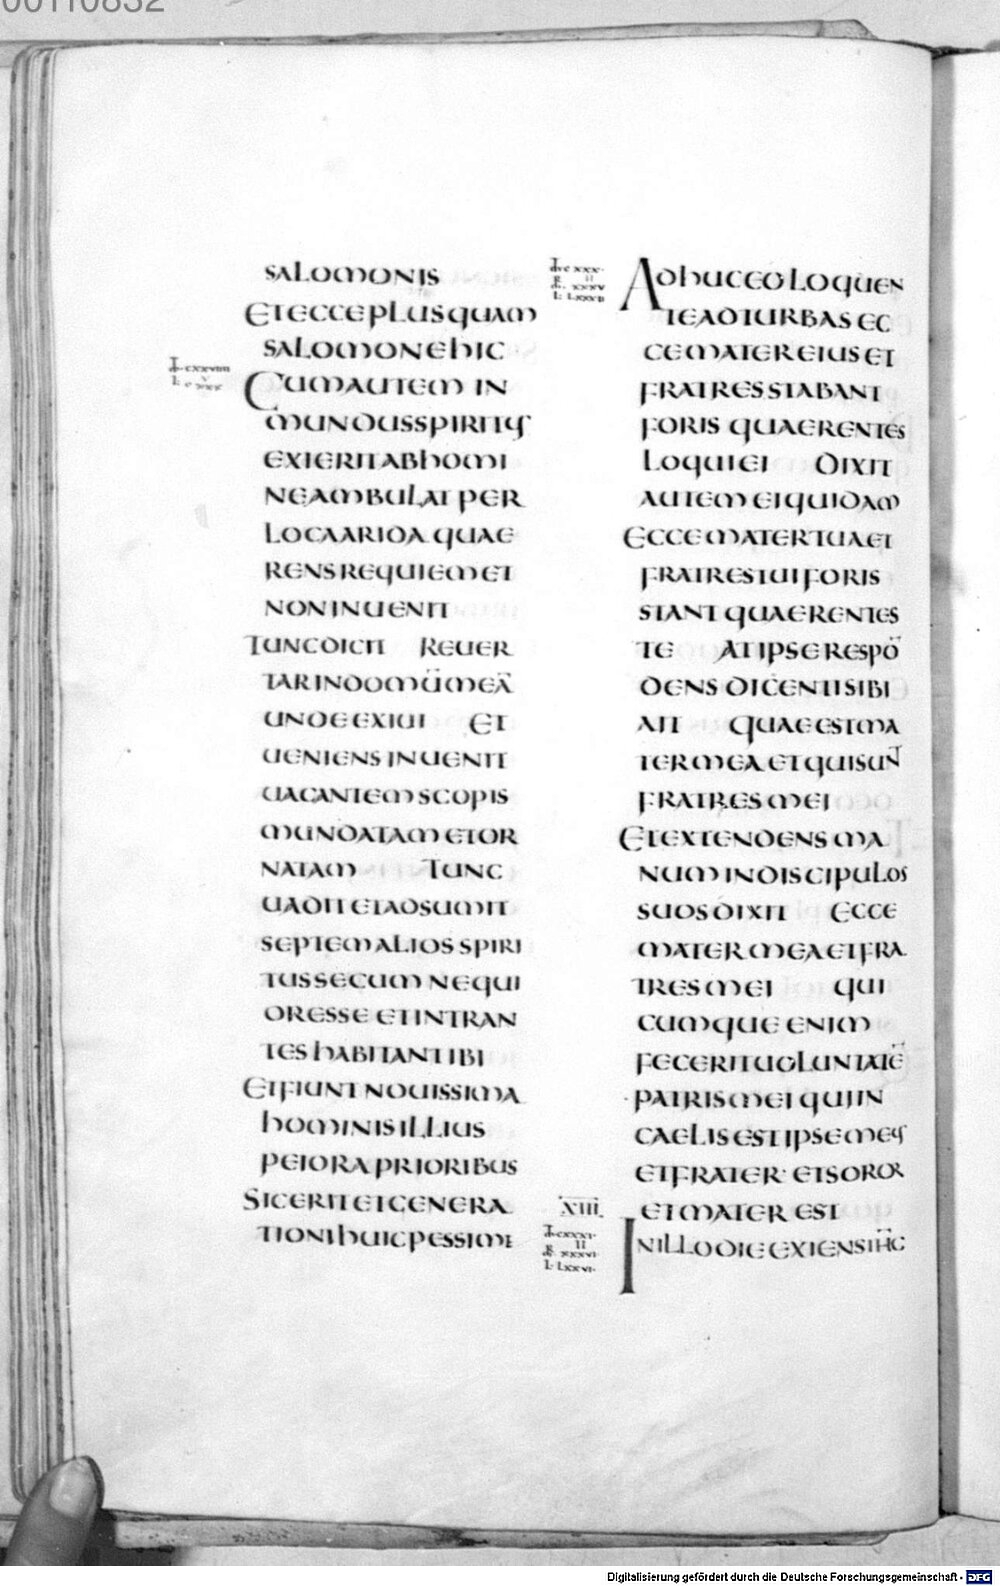 00110832
SALOMONIS
ETECCEPLUSQUAM
SALOMONEHIC
CUMAUTEM IN
MUNDUSSPIRITUS
EXIERITABHOMI
NEAMBULAT PER
LOCAARIDA QUAE
RENSREQUIEMET
NONINUENIT
TUNCDICIT REUER
TARINDOMŪMEĀ
UNDEEXIUI ET
UENIENSINUENIT
UACANTEMSCOPIS
MUNDATAMETOR
NATAM TUNC
UADITETADSUMIT
SEPTEMALIOSSPIRI
TUSSECUMNEQUI
ORESSE ETINTRAN
TESHABITANTIBI
ETFIUNTNOUISSIMA
HOMINISILLIUS
PEIORAPRIORIBUS
SICERITETGENERA
TIONIHUICPESSIME
ADHUCEOLOQUEN
TEADTURBASEC
CEMATEREIUSET
FRATRESSTABANT
FORIS QUAERENTES
LOQUIEI DIXIT
AUTEMEIQUIDAM
ECCEMATERTUAET
FRATRESTUIFORIS
STANTQUAERENTES
TE ATIPSERESPO͞
DENS DICENTISIBI
AIT QUAEESTMA
TERMEAETQUISUNT
FRATRESMEI
ETEXTENDENSMA
NUMINDISCIPULOS
SUOSDIXIT ECCE
MATERMEAETFRA
TRESMEI QUI
CUMQUEENIM
FECERITUOLUNTATĒ
PATRISMEIQUIIN
CAELISESTIPSEMEUS
ETFRATER· ETSOROR
ETMATER EST
XIII
INILLODIEEXIENSIH̄C
Digitalisierung gefördert durch die Deutsche Forschungsgemeinschaft - DFG